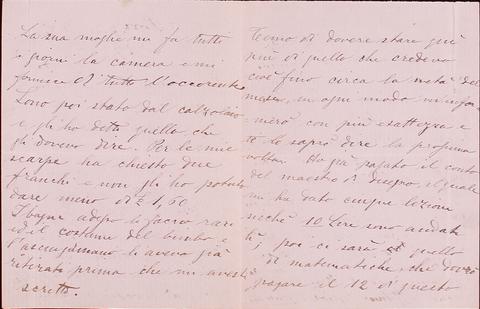 La sua moglie mi fa tutto
i giorni la camera e mi
fornisce di tutto l'occorrente
Sono poi stato dal calzolaio
e gli ho detto quello che
gli dovevo dire. Per le mie
scarpe ha chiesto due
franchi e non gli ho potuto
dare meno di £ 1,50.
I bagni adesso li faccio rari
ed il costume del bimbo e
l'asciugamano li aveva già
ritirati prima che mi avesti
scritto.
Temo di dovere stare qui
più di quello che credevo
cioè fino circa la metà del
mese, in ogni modo m'infor
merò con più esattezza e
te lo saprò dire la prossima
volta. Ho già pagato il conto
del maestro di disegno, il quale
mi ha dato cinque lezioni
sicchè 10 Lire sono andate
poi ci sarà quello
di matematiche, che dovrò
pagare il 12 di questo